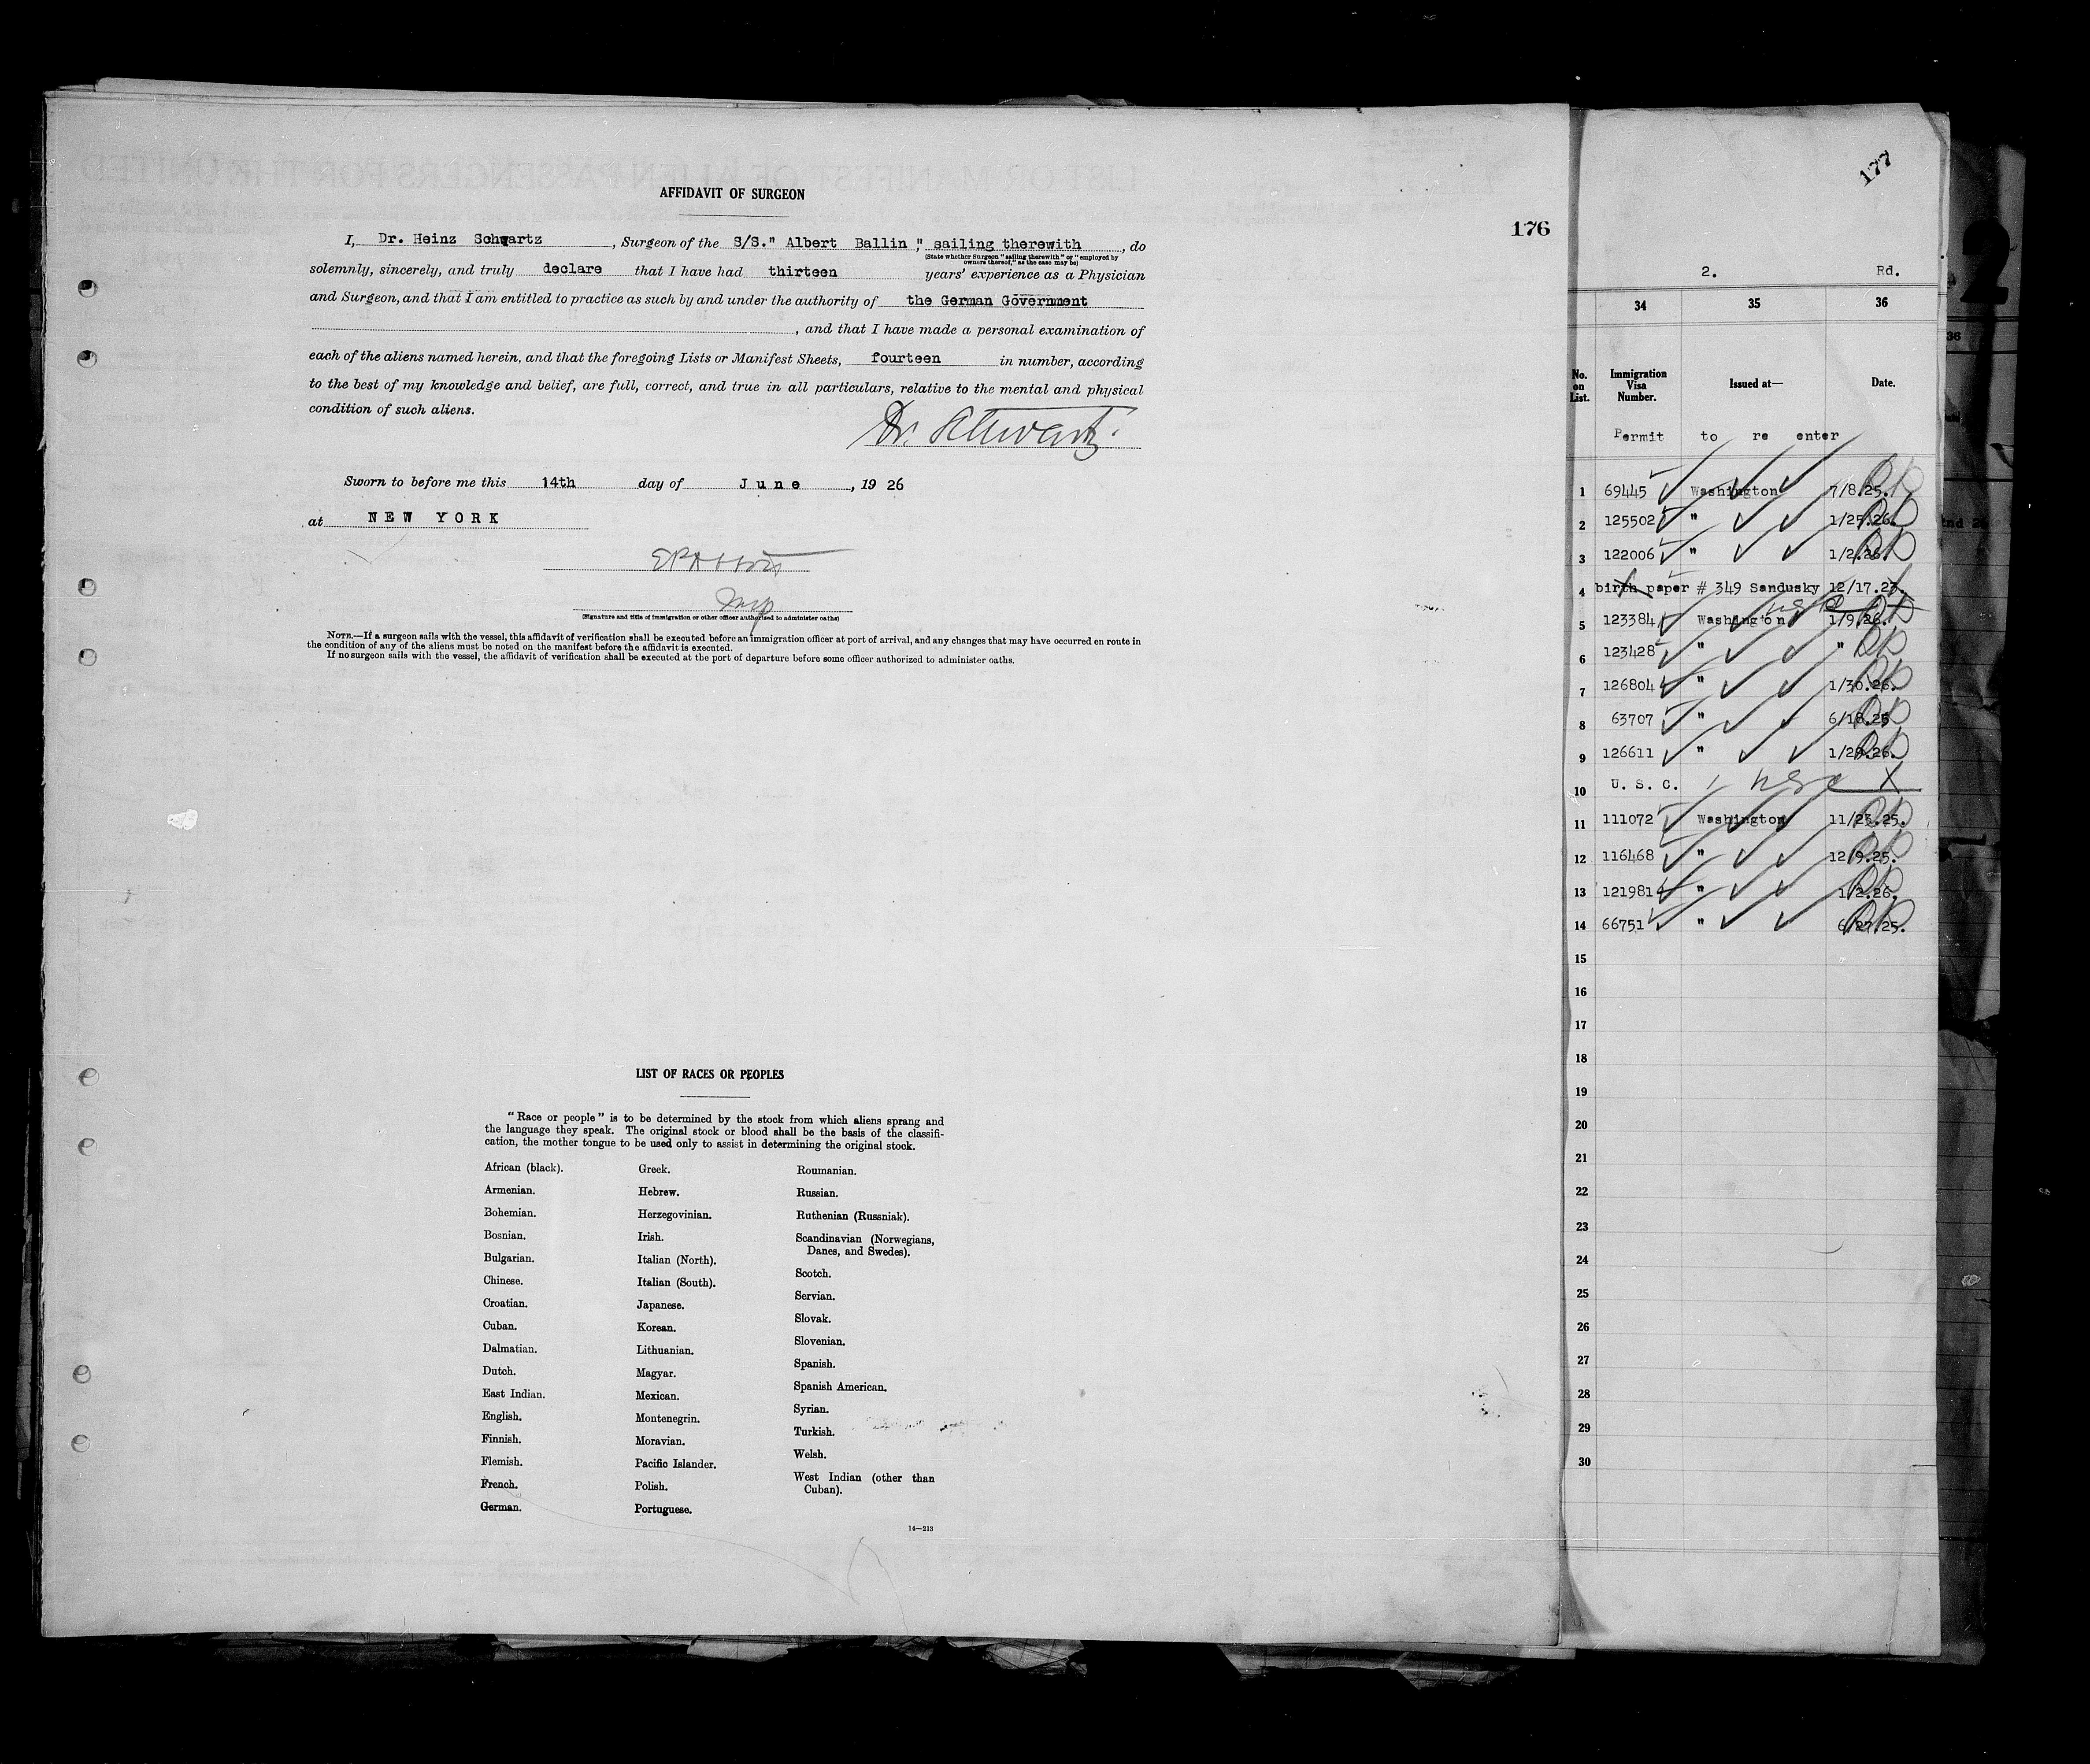 AFFIDAVIT OF SURGEON
I, Dr. Heinz Schwartz, Surgeon of the S/S." Albert Ballin," sailing therewith, do
(State whether Surgeon "sailing therewith" or "employed by
owners thereof," as the case may be)
solemnly, sincerely, and truly declare that I have had thirteen years' experience as a Physician
and Surgeon, and that I am entitled to practice as such by and under the authority of the German Government
, and that I have made a personal examination of
each of the aliens named herein, and that the foregoing Lists or Manifest Sheets, fourteen in number, according
to the best of my knowledge and belief, are full, correct, and true in all particulars, relative to the mental and physical
condition of such aliens.
Dr. Schwartz.
Sworn to before me this 14th day of June, 1926
at NEW YORK
(Signature and title of immigration or other officer authorized to administer oaths)
NOTE.—If a surgeon sails with the vessel, this affidavit of verification shall be executed before an immigration officer at port of arrival, and any changes that may have occurred en route in
the condition of any of the aliens must be noted on the manifest before the affidavit is executed.
If no surgeon sails with the vessel, the affidavit of verification shall be executed at the port of departure before some officer authorized to administer oaths.
LIST OF RACES OR PEOPLES
"Race or people" is to be determined by the stock from which aliens sprang and
the language they speak. The original stock or blood shall be the basis of the classifi-
cation, the mother tongue to be used only to assist in determining the original stock.
African (black).
Armenian.
Bohemian.
Bosnian.
Bulgarian.
Chinese.
Croatian.
Cuban.
Dalmatian.
Dutch.
East Indian.
English.
Finnish.
Flemish.
French.
German.
Greek.
Hebrew.
Herzegovinian.
Irish.
Italian (North).
Italian (South).
Japanese.
Korean.
Lithuanian.
Magyar.
Mexican.
Montenegrin.
Moravian.
Pacific Islander.
Polish.
Portuguese.
Roumanian.
Russian.
Ruthenian (Russniak).
Scandinavian (Norwegians,
Danes, and Swedes).
Scotch.
Servian.
Slovak.
Slovenian.
Spanish.
Spanish American.
Syrian.
Turkish.
Welsh.
West Indian (other than
Cuban).
14—213
176
177
2. Rd.
34 35 36
No. on List. Immigration Visa Number. Issued at— Date.
Permit to re enter
1 69445 Washington 7/8.25.
2 125502 " 1/25.26.
3 122006 " 1/2.26.
4 birth paper # 349 Sandusky 12/17.23.
5 123384 Washington 1/9.26.
6 123428 " "
7 126804 " 1/30.26.
8 63707 " 6/18.25
9 126611 " 1/29.26.
10 U. S. C.
11 111072 Washington 11/23.25.
12 116468 " 12/9.25.
13 121981 " 1/2.26.
14 66751 " 6/27.25.
15
16
17
18
19
20
21
22
23
24
25
26
27
28
29
30
2
36